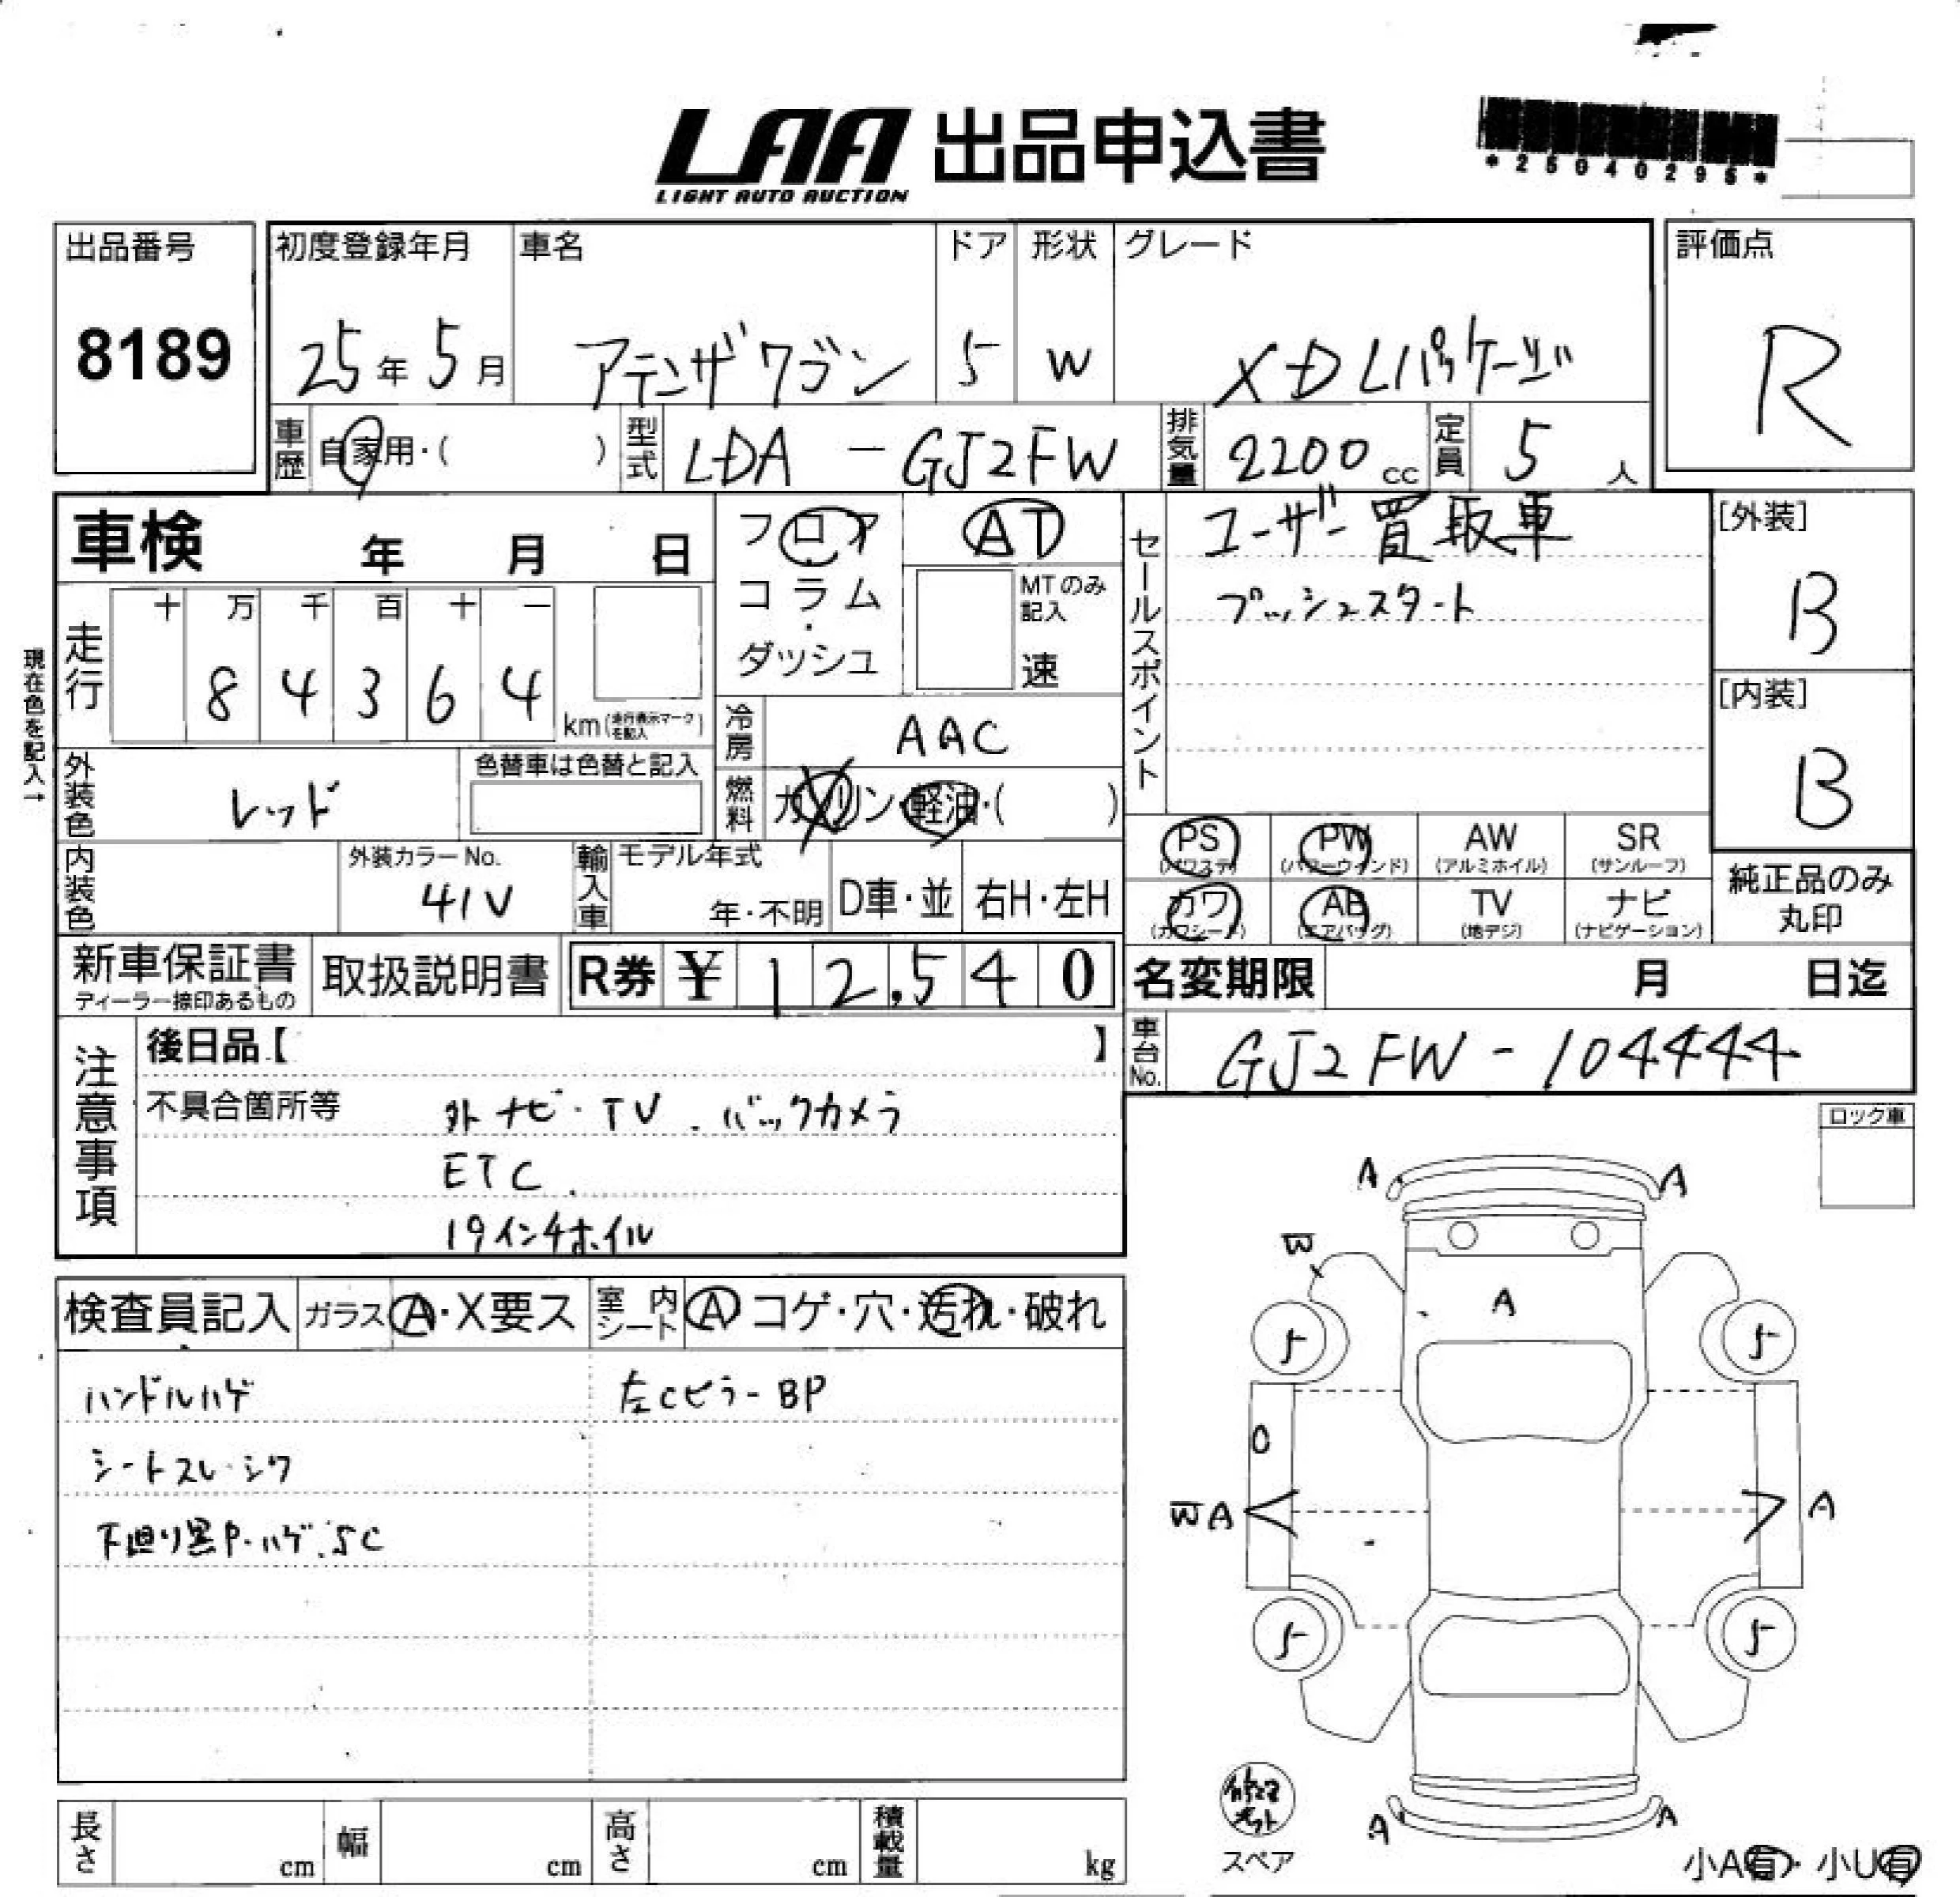 LAA 出品申込書
LIGHT AUTO AUCTION
*25040295*
出品番号
8189
初度登録年月
25年5月
車名
アテンザワゴン
ドア
5
形状
W
グレード
XD Lパッケージ
評価点
R
車歴 自家用・( )
型式 LDA-GJ2FW
排気量 2200cc
定員 5人
車検 年 月 日
フロア・コラム・ダッシュ
AT
MTのみ記入
速
セールスポイント
ユーザー買取車
プッシュスタート
[外装]
B
[内装]
B
現在色を記入→
走行
十 万 千 百 十 一
8 4 3 6 4
km(走行表示マークを記入)
冷房 AAC
外装色 レッド
色替車は色替と記入
燃料 ガソリン・軽油・( )
内装色
外装カラーNo.
41V
輸入車
モデル年式
年・不明
D車・並
右H・左H
PS (パワステ)
PW (パワーウィンド)
AW (アルミホイル)
SR (サンルーフ)
カワ (カワシート)
AB (エアバッグ)
TV (地デジ)
ナビ (ナビゲーション)
純正品のみ丸印
新車保証書
ディーラー捺印あるもの
取扱説明書
R券 ¥12,540
名変期限 月 日迄
車台No. GJ2FW-104444
注意事項
後日品【 】
不具合箇所等
外ナビ・TV.バックカメラ
ETC.
19インチホイル
ロック車
検査員記入
ガラス A・X要ス
室内シート A コゲ・穴・汚れ・破れ
ハンドルハゲ
左Cピラ-BP
シートスレ・シワ
下廻り黒P・ハゲ.SC
A A
W
A
5 5
O
WA A
5 5
修理キット
スペア
A A
小A有・小U有
長さ cm
幅 cm
高さ cm
積載量 kg